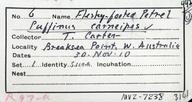 No 6 Name Fleshy-footed Petrel
Puffinus carneipes
Collector T. Carter
Locality Breaksea Point, W. Australia
Date 30. Nov. 10
Set 1 Identity Incubation
1002-7238